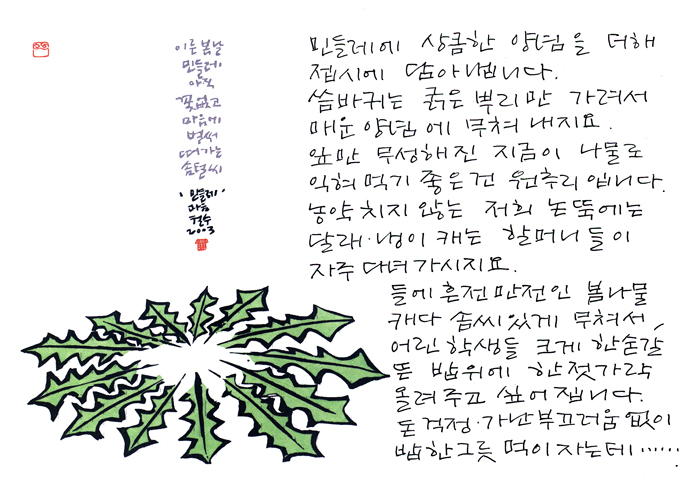 이른 봄날
민들레
아직
꽃 없고
마음에
벌써
떠가는
솜털 씨
· 민들레 ·
마음
철수
2003
민들레에 상큼한 양념을 더해
접시에 담아냅니다.
씀바귀는 굵은 뿌리만 가려서
매운 양념에 무쳐 내지요.
잎만 무성해진 지금이 나물로
익혀 먹기 좋은 건 원추리입니다.
농약 치지 않는 저희 논뚝에는
달래·냉이 캐는 할머니들이
자주 다녀가시지요.
들에 흔전만전인 봄나물
캐다 솜씨있게 무쳐서,
어린 학생들 크게 한 숟갈
뜬 밥 위에 한 젓가락
올려주고 싶어집니다.
돈 걱정·가난 부끄러움 없이
밥 한그릇 먹이자는데 ······